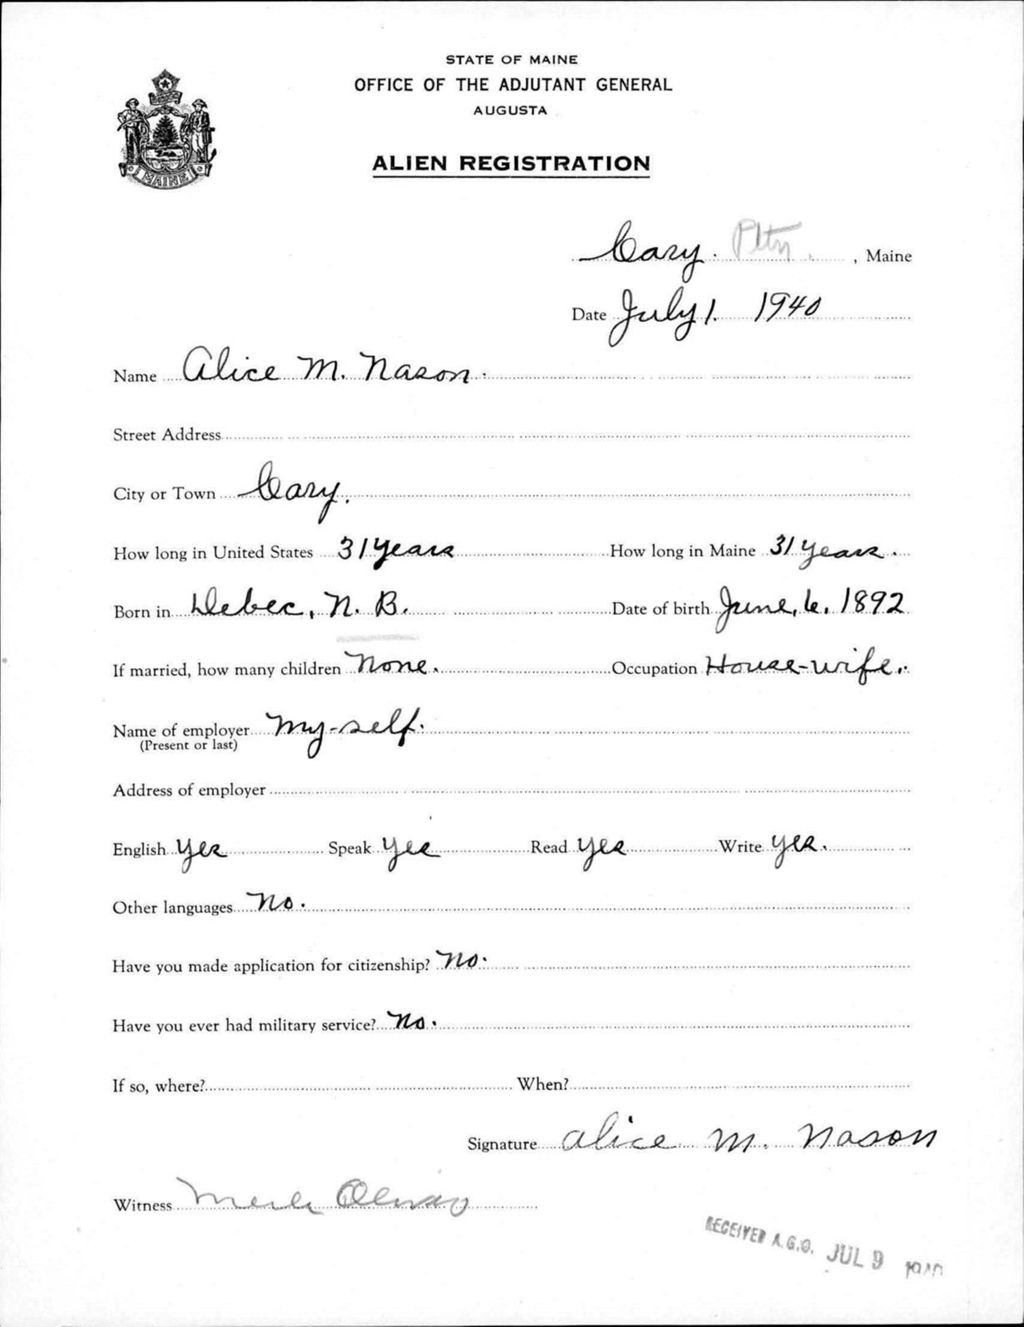 STATE OF MAINE
OFFICE OF THE ADJUTANT GENERAL
AUGUSTA
MAINE
ALIEN REGISTRATION
Cary. Pltn. , Maine
Date July 1. 1940
Name Alice M. Nason.
Street Address
City or Town Cary.
How long in United States 31 Years How long in Maine 31 Years.
Born in Debec, N. B. Date of birth June, 6, 1892
If married, how many children None. Occupation House-wife.
Name of employer My-self.
(Present or last)
Address of employer
English Yes Speak Yes Read Yes Write Yes.
Other languages No.
Have you made application for citizenship? No.
Have you ever had military service? No.
If so, where? When?
Signature Alice M. Nason
Witness Merle
RECEIVED A.G.O. JUL 9 1940